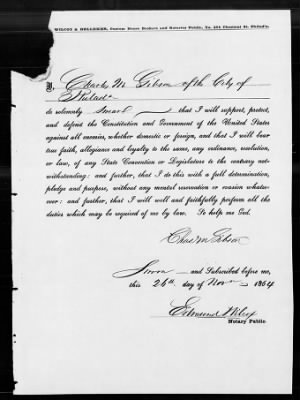 WILCOX & HOLLINGER, Custom House Brokers and Notaries Public, No. 204 Chestnut St. Philad'a.
I, Charles M Gibson of the City of
Philada
do solemnly swear that I will support, protect,
and defend the Constitution and Government of the United States
against all enemies, whether domestic or foreign, and that I will bear
true faith, allegiance and loyalty to the same, any ordinance, resolution,
or law, of any State Convention or Legislature to the contrary not-
withstanding: and further, that I do this with a full determination,
pledge and purpose, without any mental reservation or evasion whatso-
ever: and further, that I will well and faithfully perform all the
duties which may be required of me by law. So help me God.
Chas M Gibson
Sworn and Subscribed before me,
this 26th day of Nov 1864
Edmund Wilcox
Notary Public.